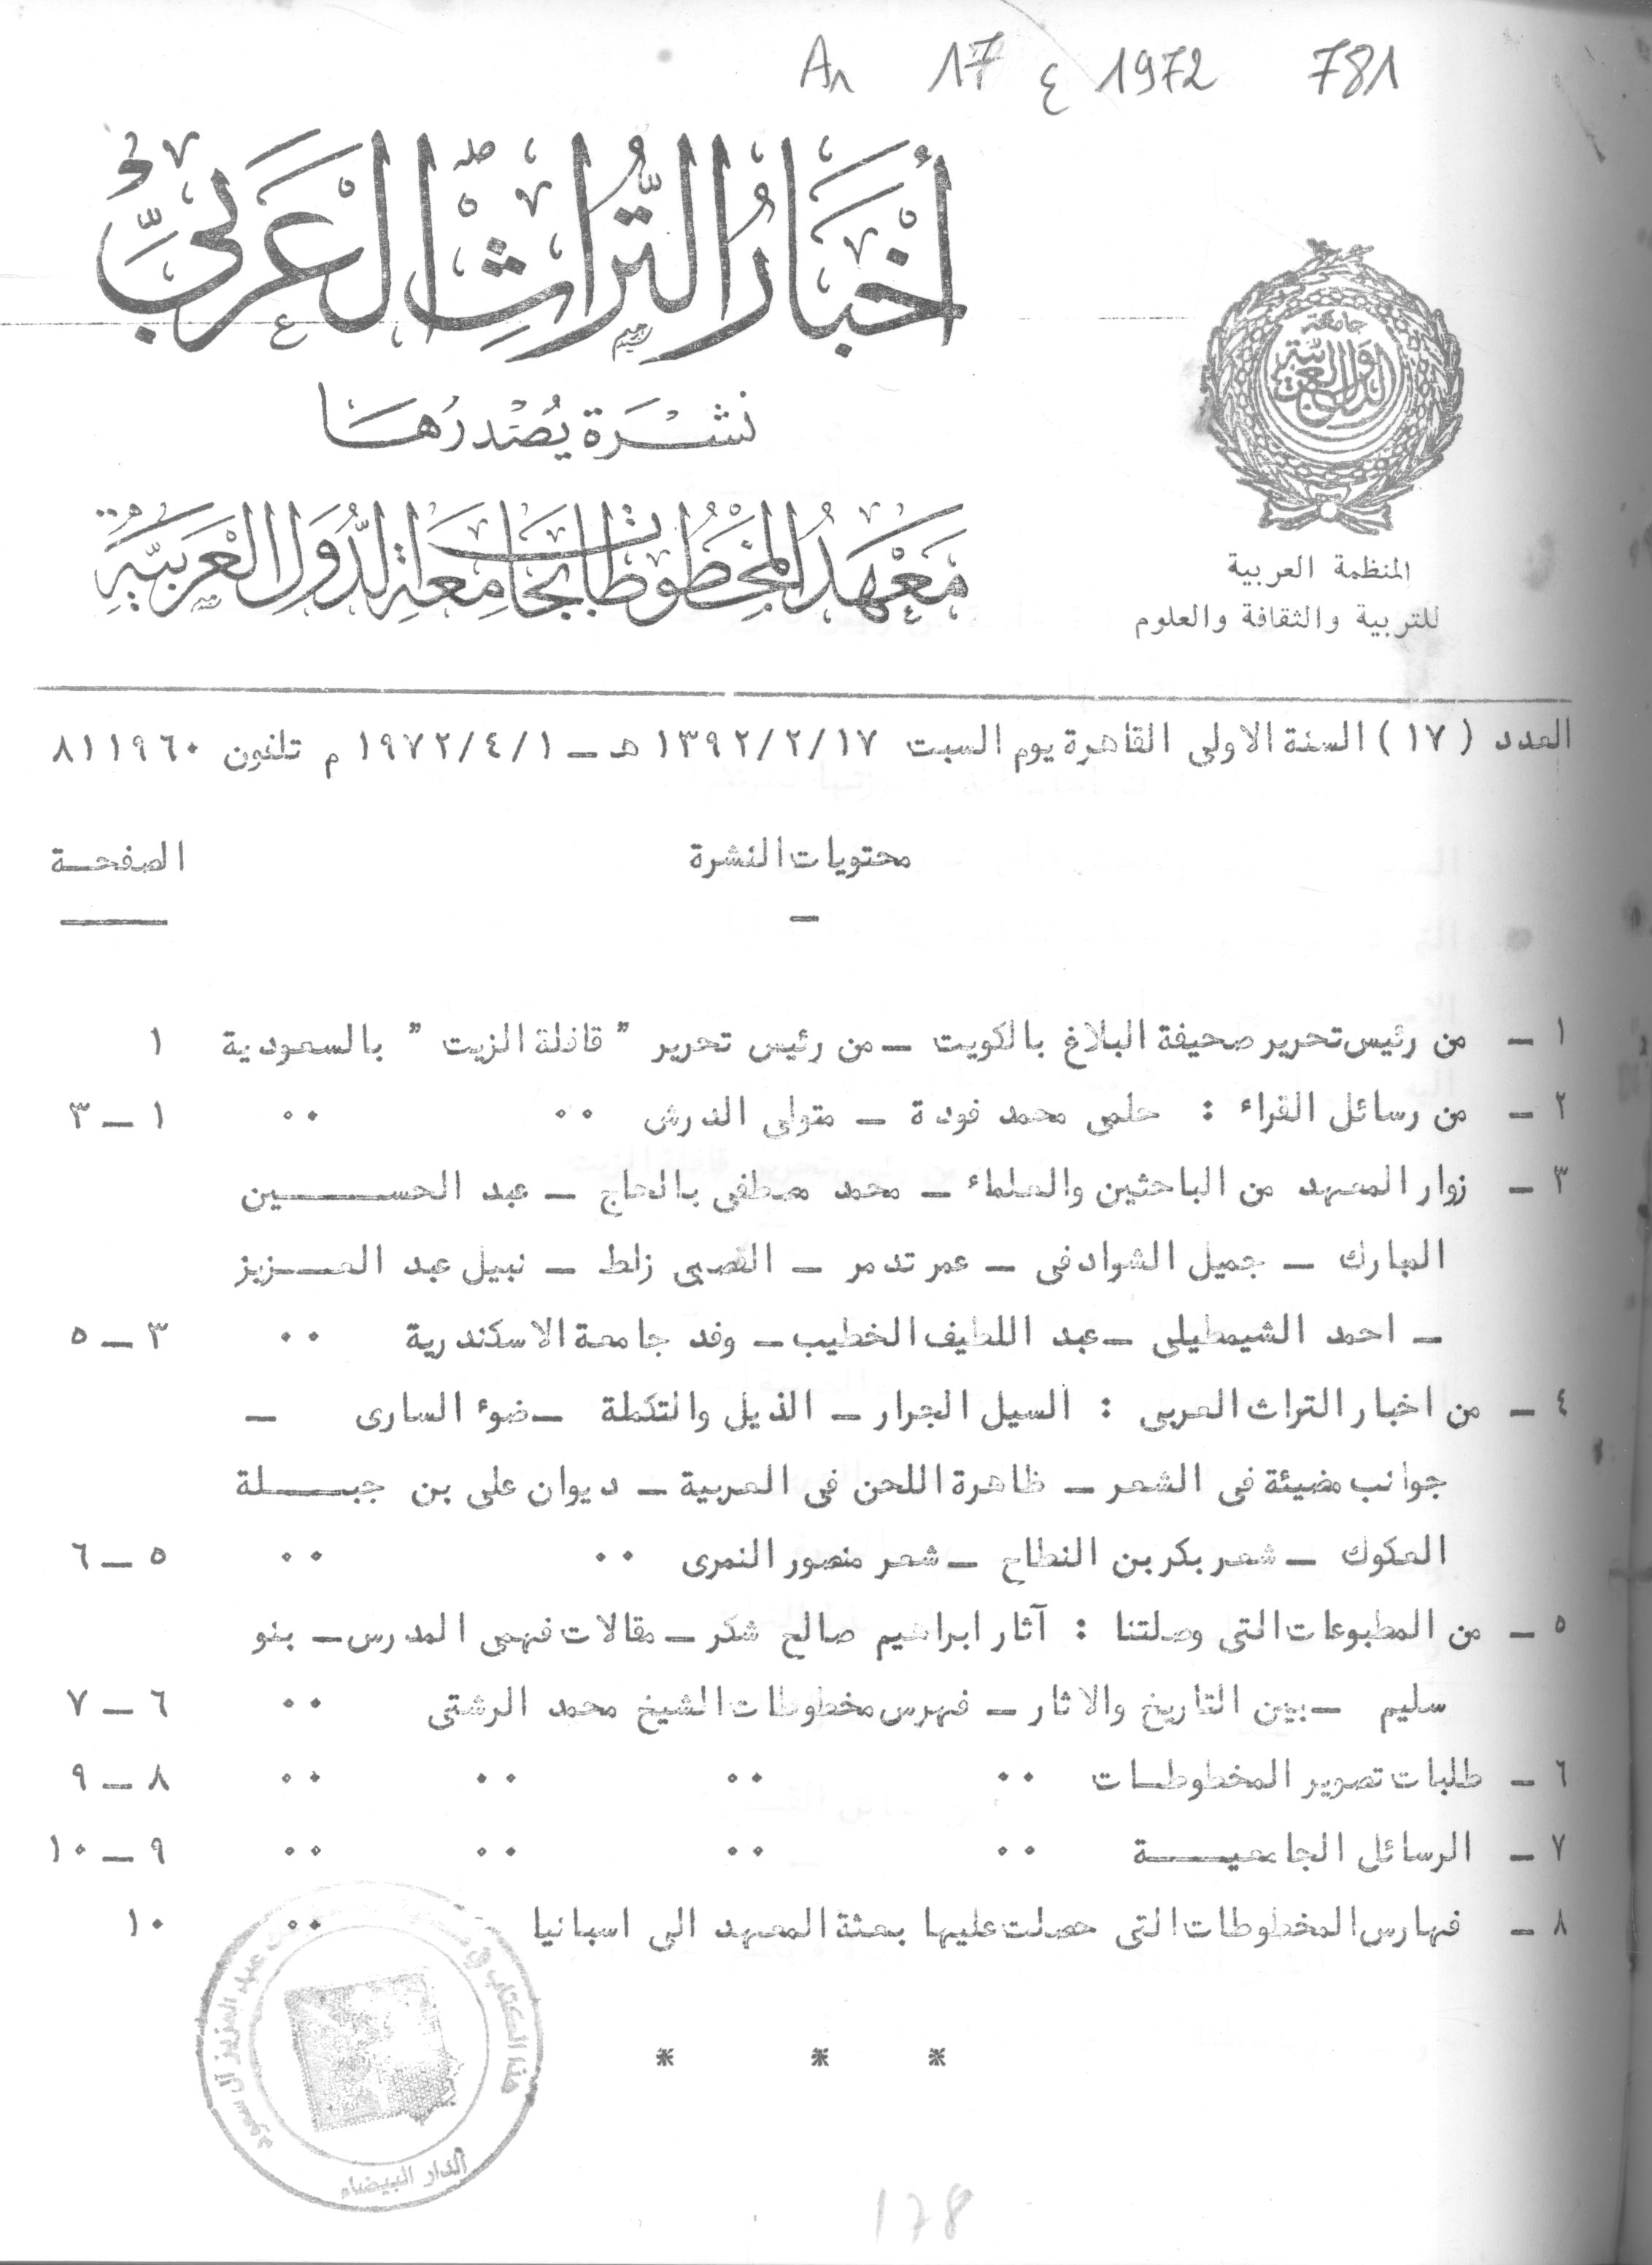 An 17 ع 1972 781
أَخْبَارُ التُّرَاثِ الْعَرَبِيِّ
نشرة يصدرها
معهد المخطوطات بجامعة الدول العربية
جامعة
الدول العربية
المنظمة العربية
للتربية والثقافة والعلوم
العدد (١٧) السنة الاولى القاهرة يوم السبت ١٣٩٢/٢/١٧ هـ ـ ١٩٧٢/٤/١ م تلفون ٨١١٩٦٠
محتويات النشرة الصفحة
١ ـ من رئيس تحرير صحيفة البلاغ بالكويت ـ من رئيس تحرير " قافلة الزيت " بالسعودية ١
٢ ـ من رسائل القراء : حلمى محمد فودة ـ متولى الدرش ٠٠ ٠٠ ١ ـ ٣
٣ ـ زوار المعهد من الباحثين والعلماء ـ محمد مصطفى بالحاج ـ عبد الحســـين
المبارك ـ جميل الشوادفى ـ عمر تدمر ـ القصبى زلط ـ نبيل عبد العــزيز
ـ احمد الشيمطيلى ـ عبد اللطيف الخطيب ـ وفد جامعة الاسكندرية ٠٠ ٣ ـ ٥
٤ ـ من اخبار التراث العربى : السيل الجرار ـ الذيل والتكملة ـ ضوء السارى ـ
جوانب مضيئة فى الشعر ـ ظاهرة اللحن فى العربية ـ ديوان على بن جبــلة
العكوك ـ شعر بكر بن النطاح ـ شعر منصور النمرى ٠٠ ٠٠ ٥ ـ ٦
٥ ـ من المطبوعات التى وصلتنا : آثار ابراهيم صالح شكر ـ مقالات فهمى المدرس ـ بنو
سليم ـ بين التاريخ والاثار ـ فهرس مخطوطات الشيخ محمد الرشتى ٠٠ ٦ ـ ٧
٦ ـ طلبات تصوير المخطوطـات ٠٠ ٠٠ ٠٠ ٠٠ ٨ ـ ٩
٧ ـ الرسائل الجامعيـــة ٠٠ ٠٠ ٠٠ ٠٠ ٩ ـ ١٠
٨ ـ فهارس المخطوطات التى حصلت عليها بعثة المعهد الى اسبانيا ٠٠ ١٠
* * *
هذا الكتاب فى عبد العزيز آل سعود
الدار البيضاء
178